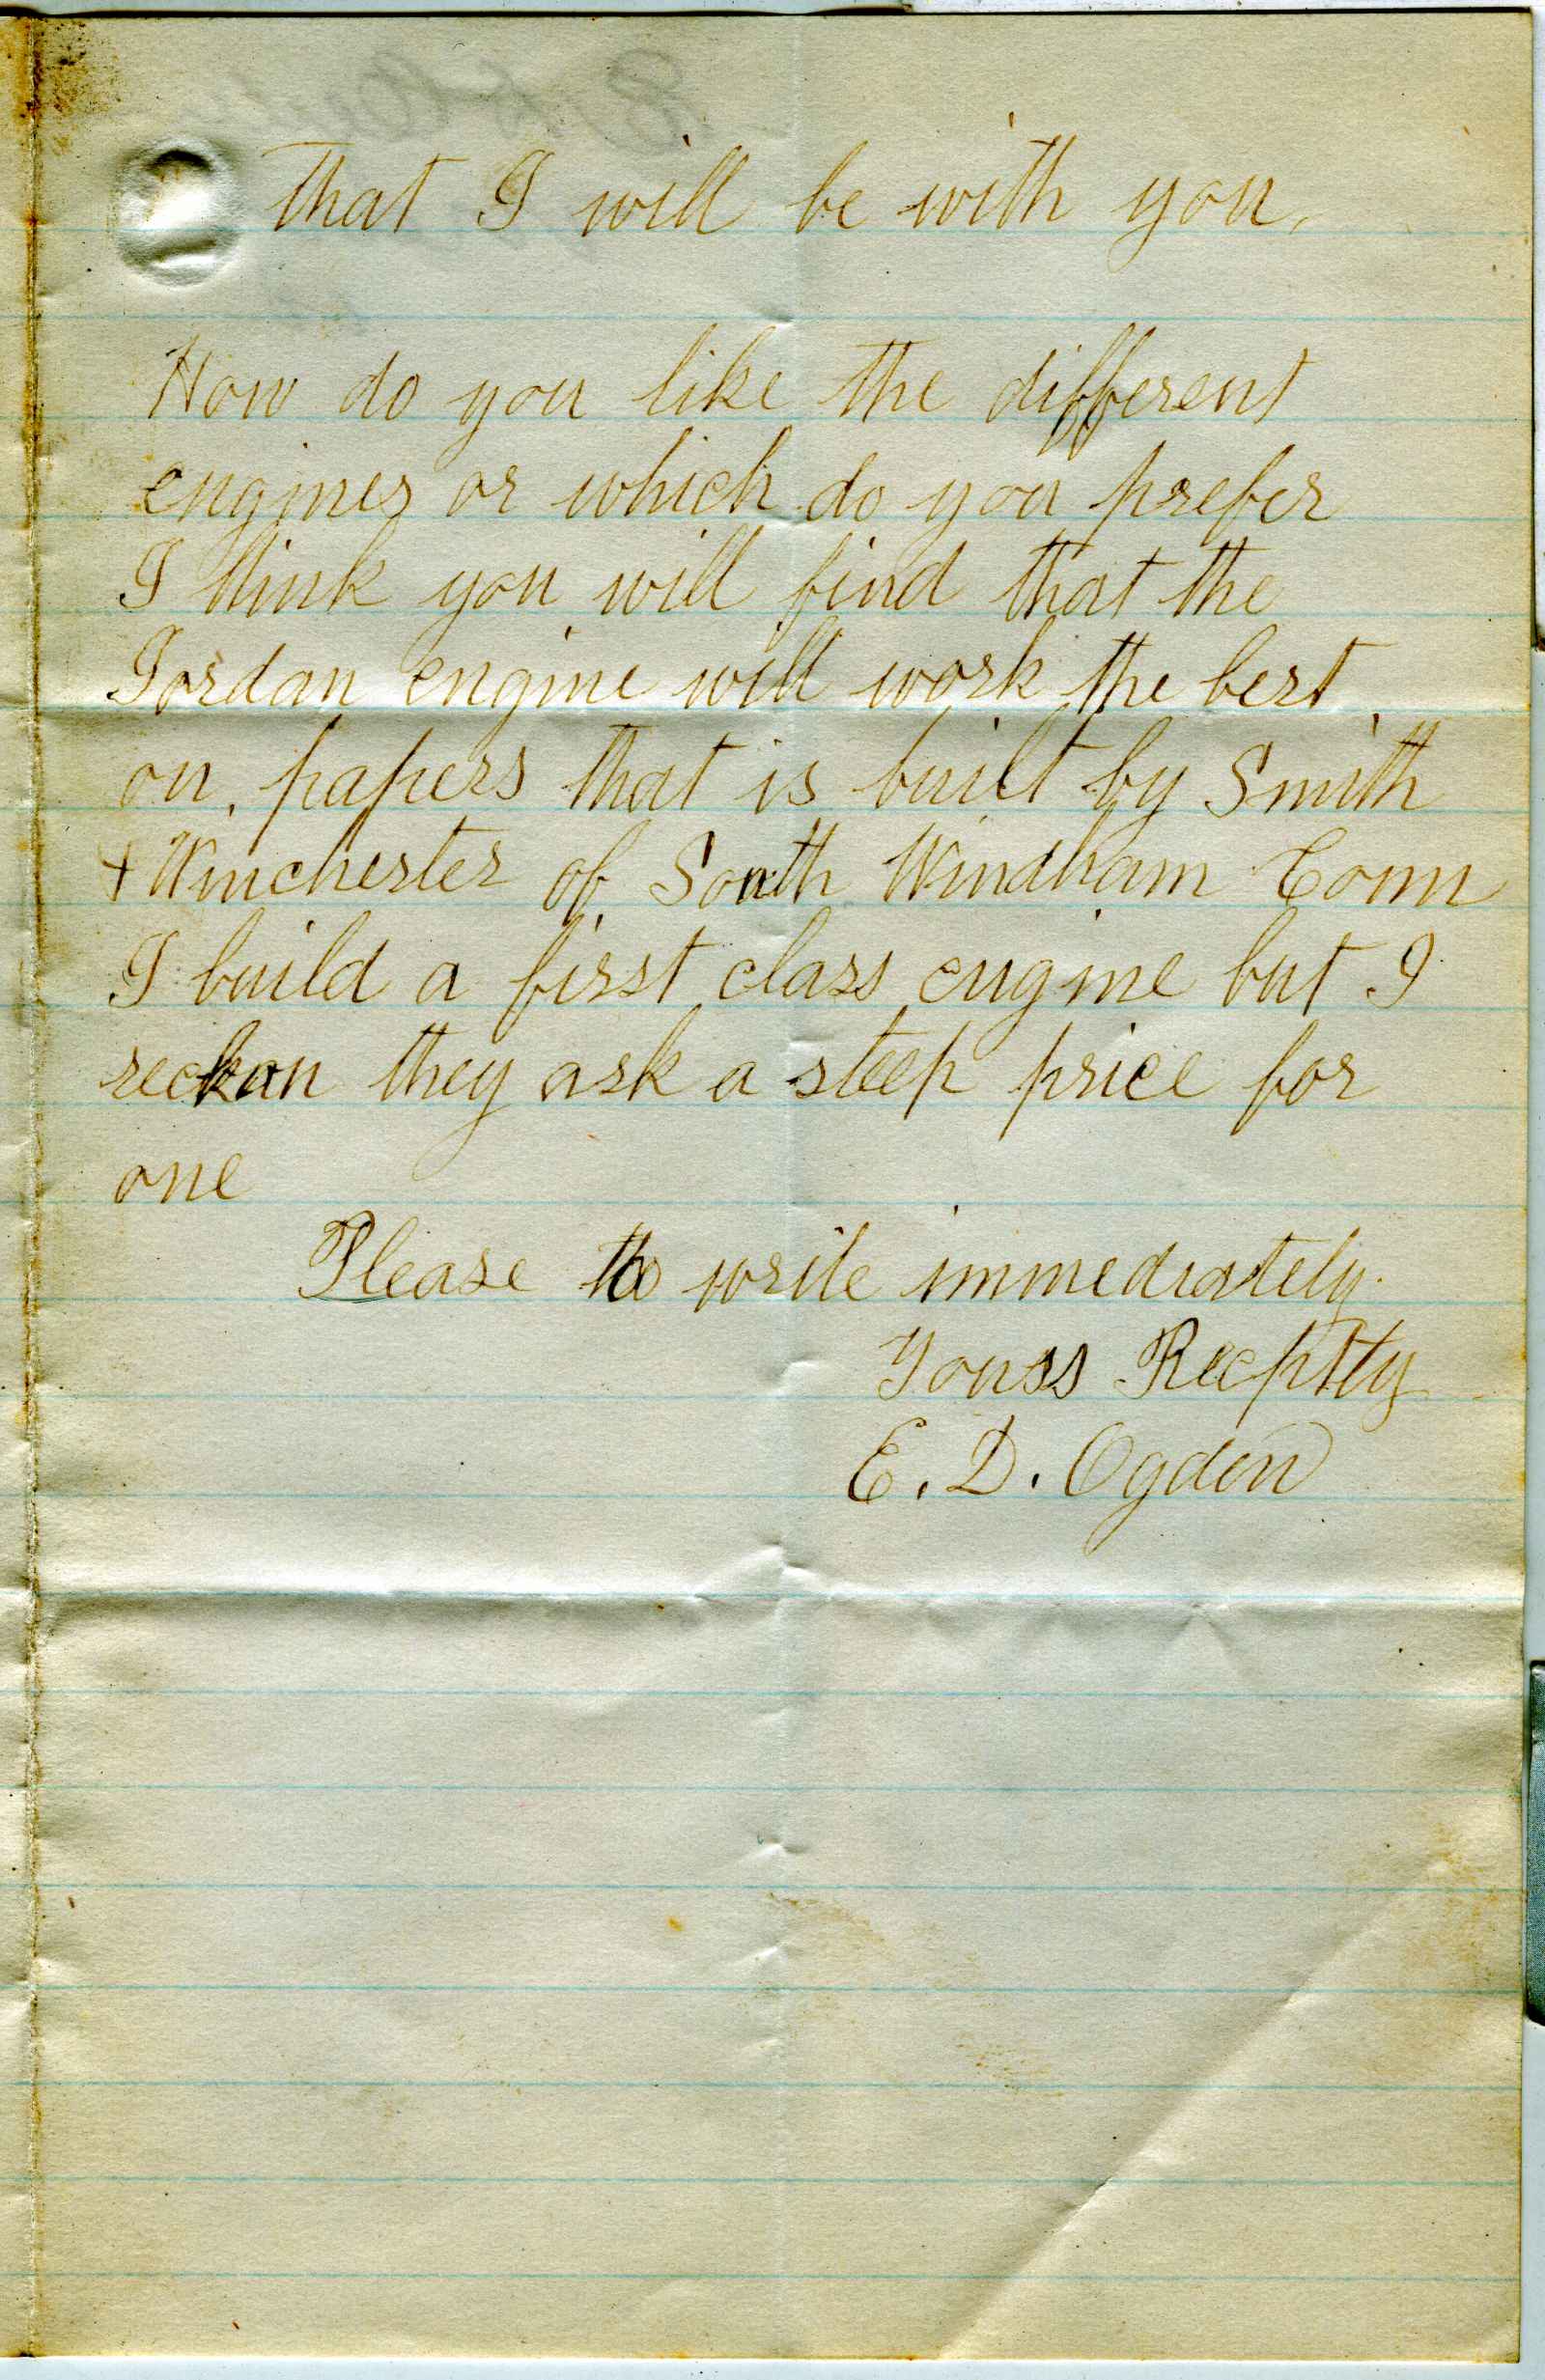 that I will be with you.
How do you like the different
engines or which do you prefer
I think you will find that the
Jordan engine will work the best
on papers that is built by Smith
& Winchester of South Windham Conn
I build a first class engine but I
reckon they ask a steep price for
one
Please to write immediately.
Yours Recptly
E. D. Ogden